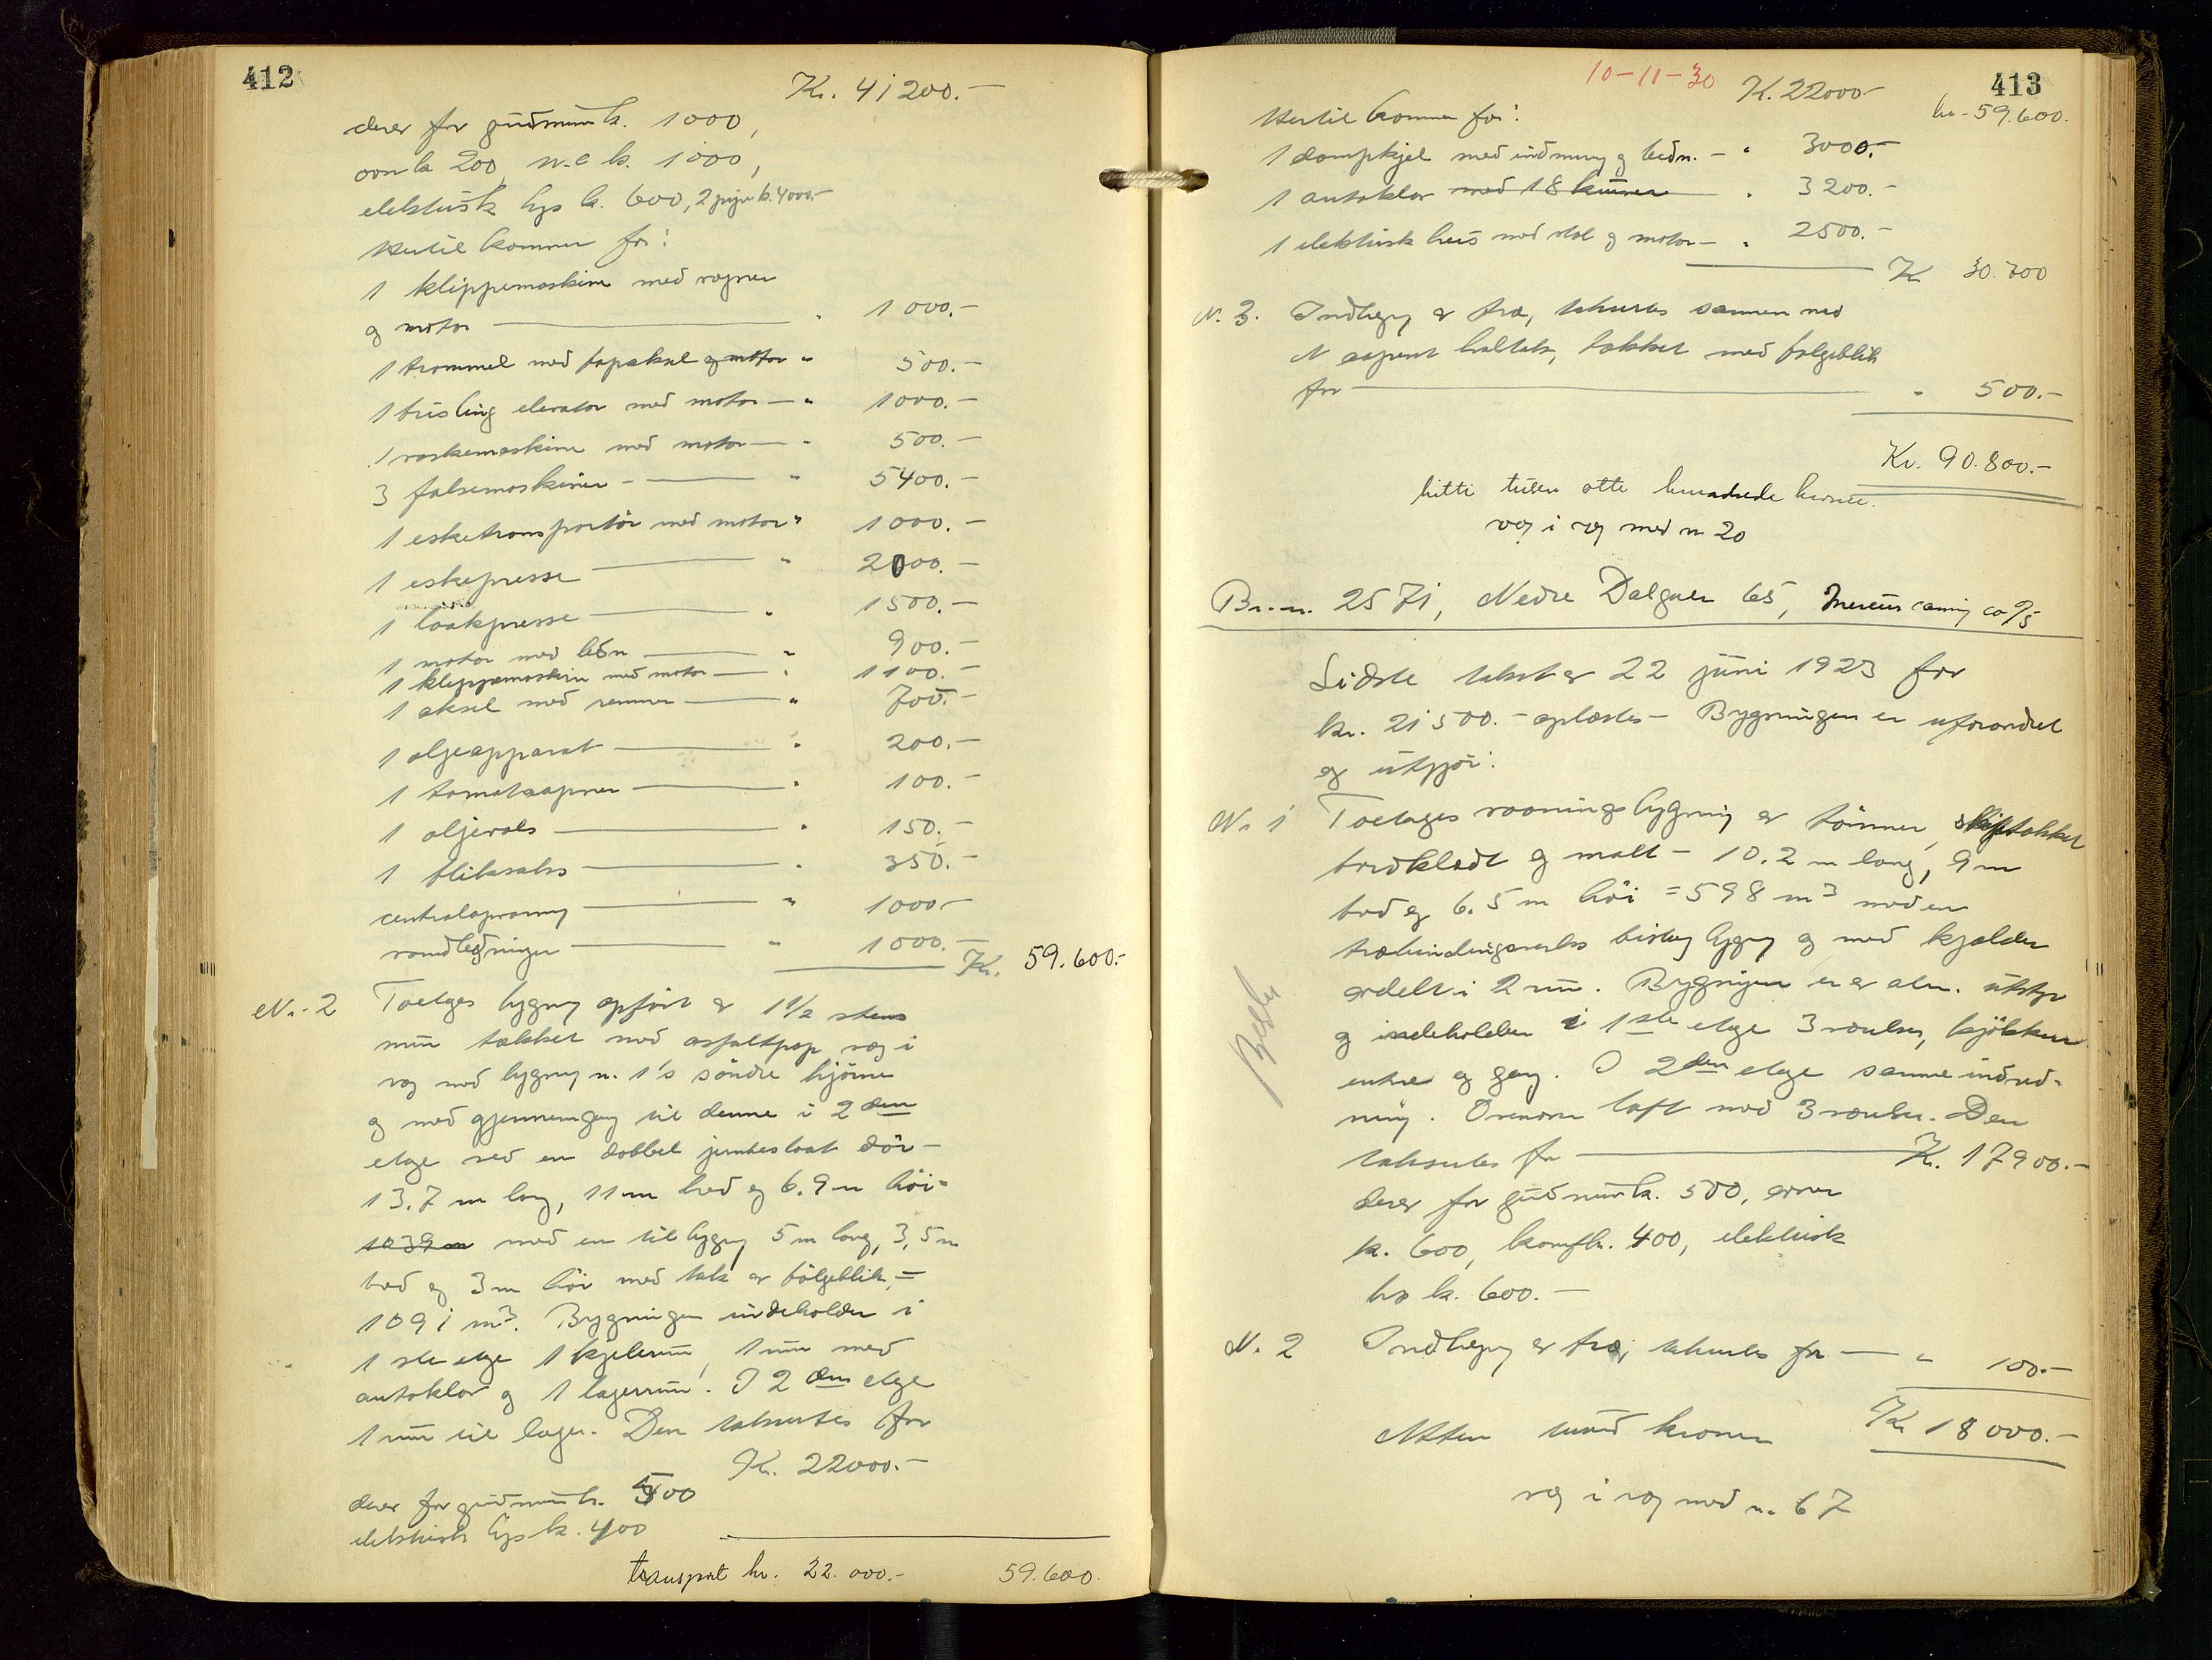 412
Kr. 41200.-
derav for grundmur kr. 1000,
ovn kr 200, w.c kr. 1000,
elektrisk lys kr. 600, 2 piper kr. 4000.-
Hertil kommer for:
1 klippemaskine med vogner
og motor — " 1000.-
1 trommel med topaksel og motor " 500.-
1 brisling elevator med motor — " 1000.-
1 vaskemaskine med motor — " 500.-
3 falsemaskiner — " 5400.-
1 esketransportör med motor " 1000.-
1 eskepresse — " 2000.-
1 laakpresse — " 1500.-
1 motor med ledn — " 900.-
1 klippemaskin med motor — " 1100.-
1 aksel med remmer — " 700.-
1 oljeapparat — " 200.-
1 tomatsapner — " 100.-
1 oljevals — " 150.-
1 blikvals — " 350.-
centralopvarmg — " 1000-
vandledninger — " 1000.-
Kr. 59.600.-
Nr. 2 Toetages bygng opført av 1½ stens
mur tækket med asfaltpap væg i
væg med bygng nr. 1's söndre hjörne
og med gjennemgang til denne i 2den
etage ved en dobbel jernbeslaat dör -
13.7 m lang, 11 m bred og 6.9 m höi =
1039 m med en tilbygng 5 m lang, 3,5 m
bred og 3 m höi med tak av bölgeblik =
1091 m3. Bygningen indeholder i
1ste etage 1 kjelerum, 1 rum med
autoklav og 1 lagerrum. I 2den etage
1 rum til lager. Den takseres for
Kr. 22000.-
derav for grundmur kr. 500
elektrisk lys kr. 400
transport kr. 22.000.- 59.600.
10-11-30 K. 22000- 413
kr. 59.600.
Hertil kommer for:
1 dampkjel med indmurng og ledn. - " 3000.-
1 autoklav med 18 kurver " 3200.-
1 elektrisk heis med stol og motor - " 2500.-
Kr 30.700
Nr. 3. Indhegng av træ, takseres sammen med
et aapent halvtak, tækket med bølgeblik
for — " 500.-
Kr. 90.800.-
Nitti tusen otte hundrede kroner.
væg i væg med nr 20
Br.-nr. 2571, Nedre Dalgate 65, canning co A/S
Sidste takst av 22 juni 1923 for
kr. 21500.- oplæstes - Bygningen er uforandret
og utgjör:
Nr 1 Toetages vaaningsbygning av tömmer, skifertækket
bordklædt og malt - 10.2 m lang, 9 m
bred og 6.5 m höi = 598 m3 med en
bislag bygng og med kjælder
avdelt i 2 rum. Bygningen er av alm. utstyr
og indeholder i 1ste etage 3 værelser, kjökken
entre og gang. I 2den etage samme indred-
ning. Ovenover loft med 3 værelser. Den
takseres for — K. 17900.-
derav for grundmur kr. 500, ovner
kr. 600, komfr. 400, elektrisk
lys kr. 600.-
Nr. 2 Indhegng av træ, takseres for — " 100.-
Kr 18000.-
Atten tusind kroner
væg i væg med nr. 67